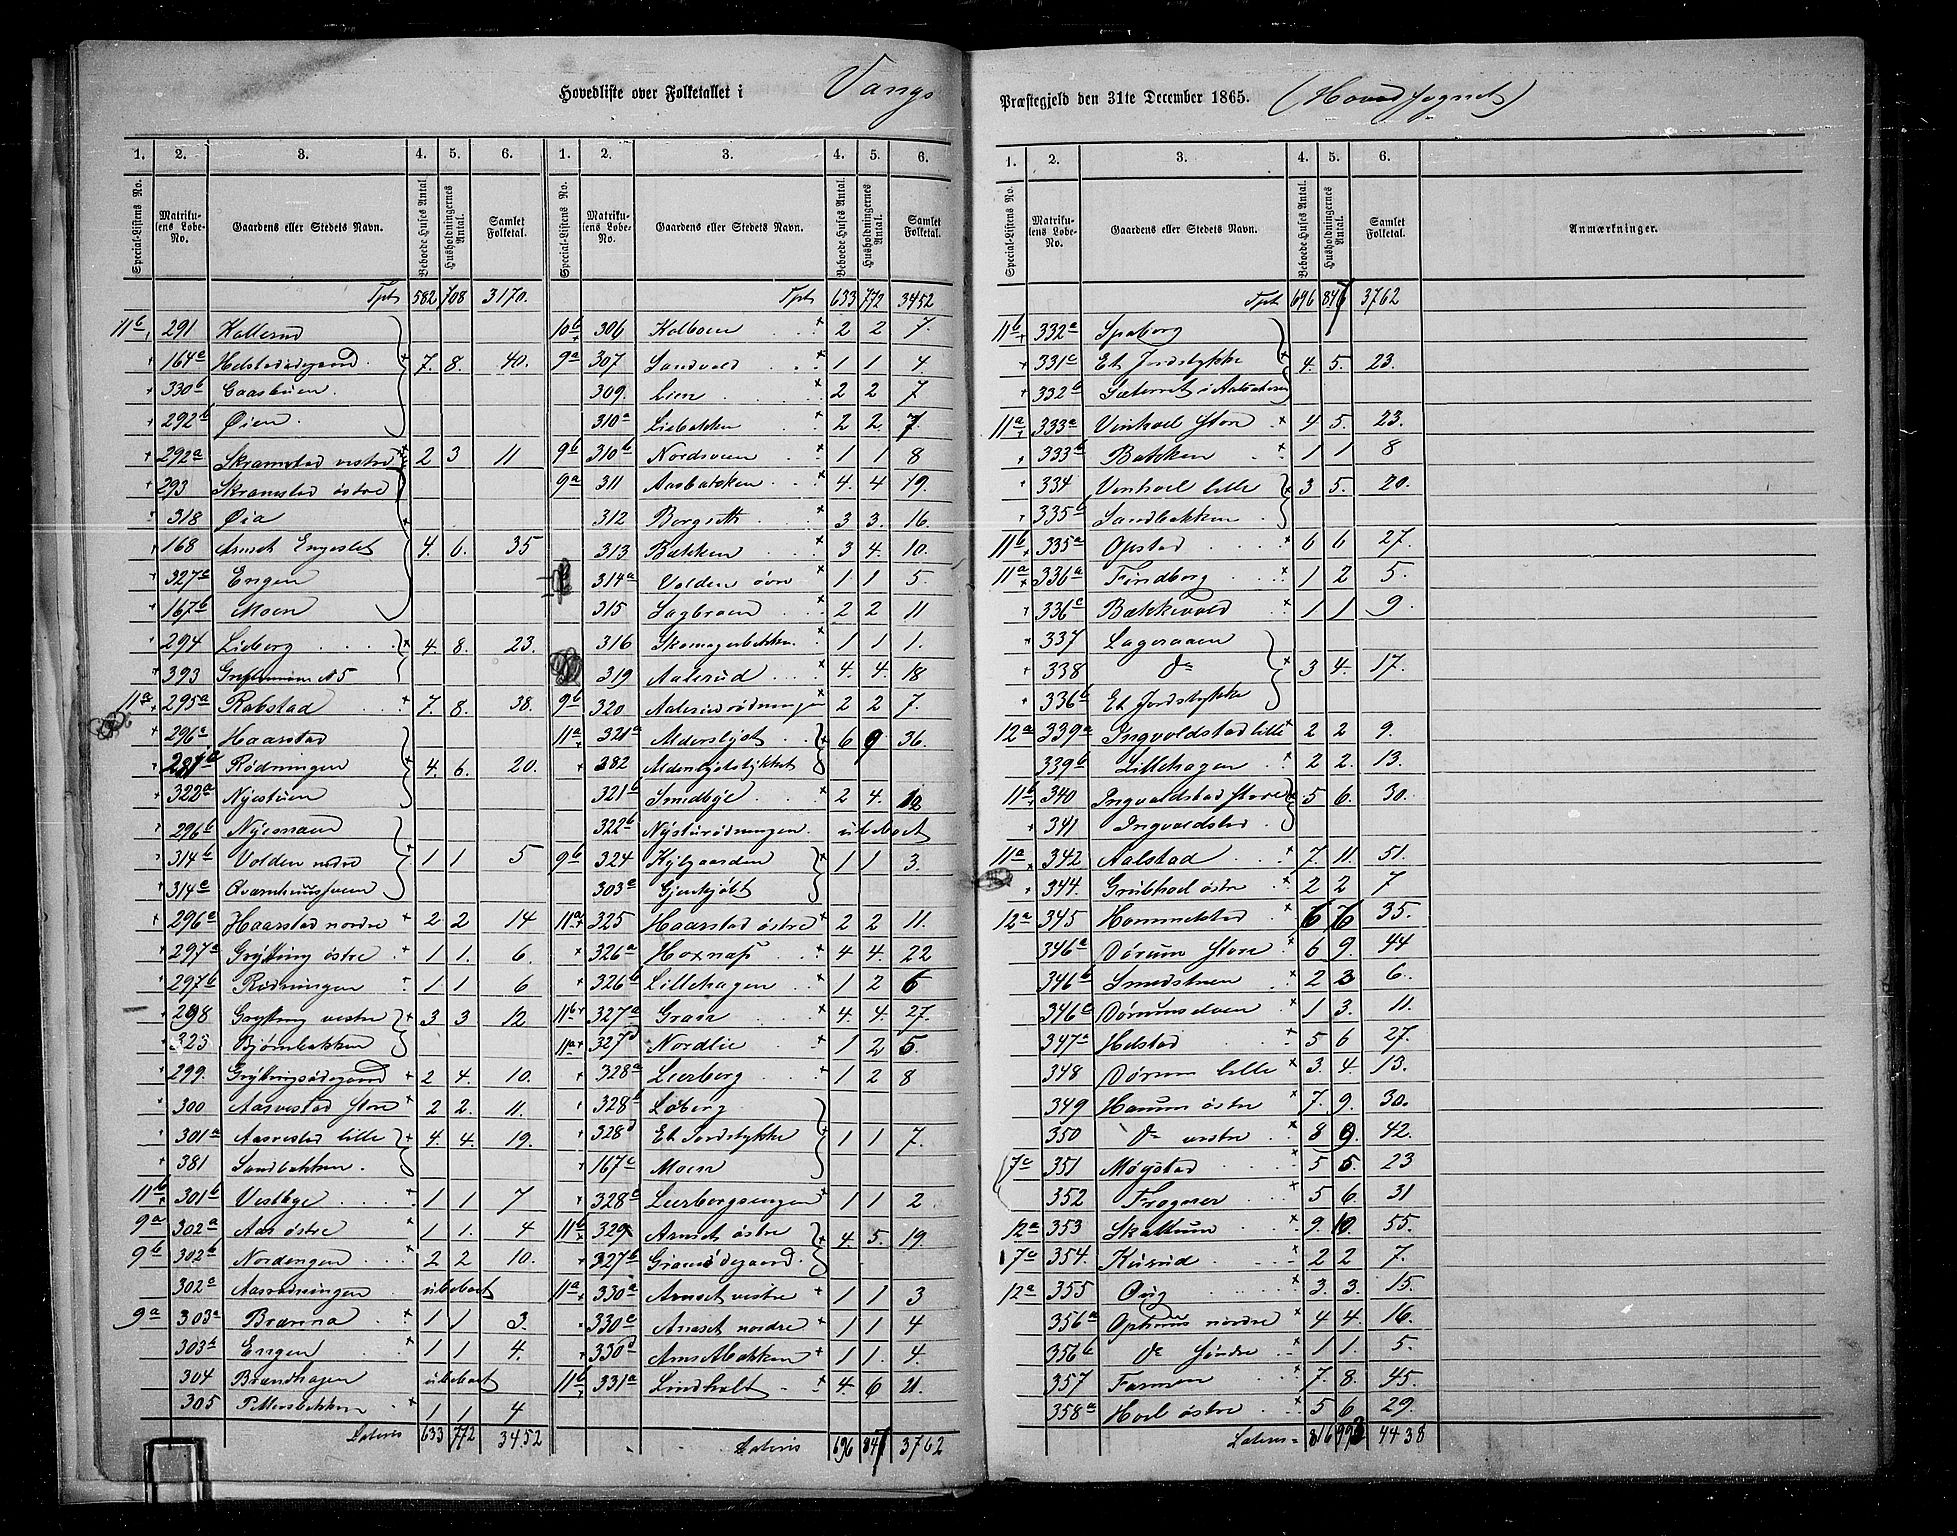 Hovedliste over Folketallet i Vangs
Præstegjeld den 31te December 1865.
1. 2. 3. 4. 5. 6. 1. 2. 3. 4. 5. 6.
Special-Listens No. Matrikulens Løbe-No. Gaardens eller Stedets Navn. Beboede Huses Antal. Husholdningernes Antal. Samlet Folketal. Special-Listens No. Matrikulens Løbe-No. Gaardens eller Stedets Navn. Beboede Huses Antal. Husholdningernes Antal. Samlet Folketal.
Tpt 582 708 3170.
11b 291 Kollerud
164a
330b Gaasbuen
292b Øien.
292a Skramstad vestre 2 3 11
293 Skramstad østre
318 Øia
168 Arnset Engeslet 4. 6. 35
327e Engen
167b Moen
294 Lieberg 4. 8. 23.
393
11a 295a Rabstad 7. 8. 38.
296a Haarstad
Rødningen 4. 6. 20.
322a Nyestuen
296b
314b Volden nedre 1 1 5
314c
Haarstad nordre 2 2 14
297a Grytting østre 1 1. 6.
297b Rødningen 1 1 6
298 Grytting vestre 3 3 12
323 Bjørnbakken
299. Gryttingsødegaard 2 4. 10.
300 Aasvestad store 2 2. 11.
301a Aasvestad lille 4. 4. 19.
381 Sandbakken.
11b 301b Vestbye 1 1 7
9a 302a Aas østre 1 1. 4
9b 302b Nordengen 2 2 10.
302a Aasrødningen ubeboet
9a 303a Brænna 1 1 3.
303b Engen 1 1 4.
304 Brændhagen ubeboet
305 Pettersbakken 1 1 4
Lateris 633 772 3452
Tpt 633 772 3452
10b 306 Kolboen 2 2 7.
9a 307 Sandvold 1 1 4
309. Lien 2 2 7
310a Liebakken 2 2 7
9b 310b Nordsveen 1 1 8
9a 311 Aasbakken 4. 4 19.
312 Borgseth 3 3. 16.
313 Bakken 3 4. 10.
314a Volden øvre 1 1 5.
315 Sagbraaen 2 2 11
316 Skomagerbakken 1 1 1.
319 Aalerud 4. 4. 18
9b 320 Aalerudrødningen 2 2 7.
11a 321a Alderslyst 6 9 36.
382 Alderslyststykket
321b Smedbye 2 4. 12
322b Nysturødningen ubeboet
9b 324 Kylgaarden 1 1 3.
303c Gjenkjøbt
11a 325 Haarstad østre 2 2 11.
326a Hoxnæs 4 4. 22
326b Lillehagen 1 2 6
11b 327a Graan 4. 4. 27.
11a 327d Nordlie 1 2 5.
328a Leerberg 1 2 8
328b Løberg
328d Et Jordstykke 1 1 7.
167c Moen
328c Leerbergsengen 1 1 2
11b 329 Arnset østre 4. 5. 19
327b Graansødegaard
11a 330a Arnset vestre 1 1 3
330c Arnset nordre 1 1 4
330d Arnsetbakken 1 1. 4.
11b 331a Lindholt 4. 6 21.
Lateris 696 847 3762
1. 2. 3. 4. 5. 6.
Special-Listens No. Matrikulens Løbe-No. Gaardens eller Stedets Navn. Beboede Huses Antal. Husholdningernes Antal. Samlet Folketal. Anmærkninger.
Tpt 696 847 3762
11b 332a Spaberg
331c Et Jordstykke 4. 5. 23.
332b
11a 333a Vinkoel store 4 5. 23.
333b Bakken 1 1 8
334 Vinkoel lille 3 5. 20.
335b Sandbakken
11b 335a Opstad 6 6 27.
11a 336a Findberg 1 2 5.
336c Bækkevold 1 1 9.
337 Lageraaen
338 do 3 4. 17.
336b Et Jordstykke
12a 339a Ingvoldstad lille 2 2 9.
339b Lillehagen 2 2. 13.
11b 340 Ingvaldstad store 5 6. 30.
341 Ingvoldstad
11a 342 Aalstad 7. 11. 51.
344. Grubhoel østre 2 2 7
12a 345 Hommelstad 6 7 35.
346a Dørum store 6 9. 44
346b Smedstuen 2 2 6.
346c Dørumselven 1 3. 11.
347a Helstad 5 6 27.
348 Dørum lille 3. 4. 13.
349 Harum østre 7. 9. 30.
350 do vestre 8 9. 42.
7c 351 Møystad 5 5. 23
352 Frogner 5 6. 31
12a 353 Skattum 9. 10. 55.
7c 354. Kurud 2 2 7.
12a 355 Øvig 3. 3. 15.
356a Opthuus nordre 4 4. 16.
356b do søndre 1 1. 5.
357 Farmen 7. 8. 45.
358a Hoel østre 5 6 29.
Lateris 816 993 4438